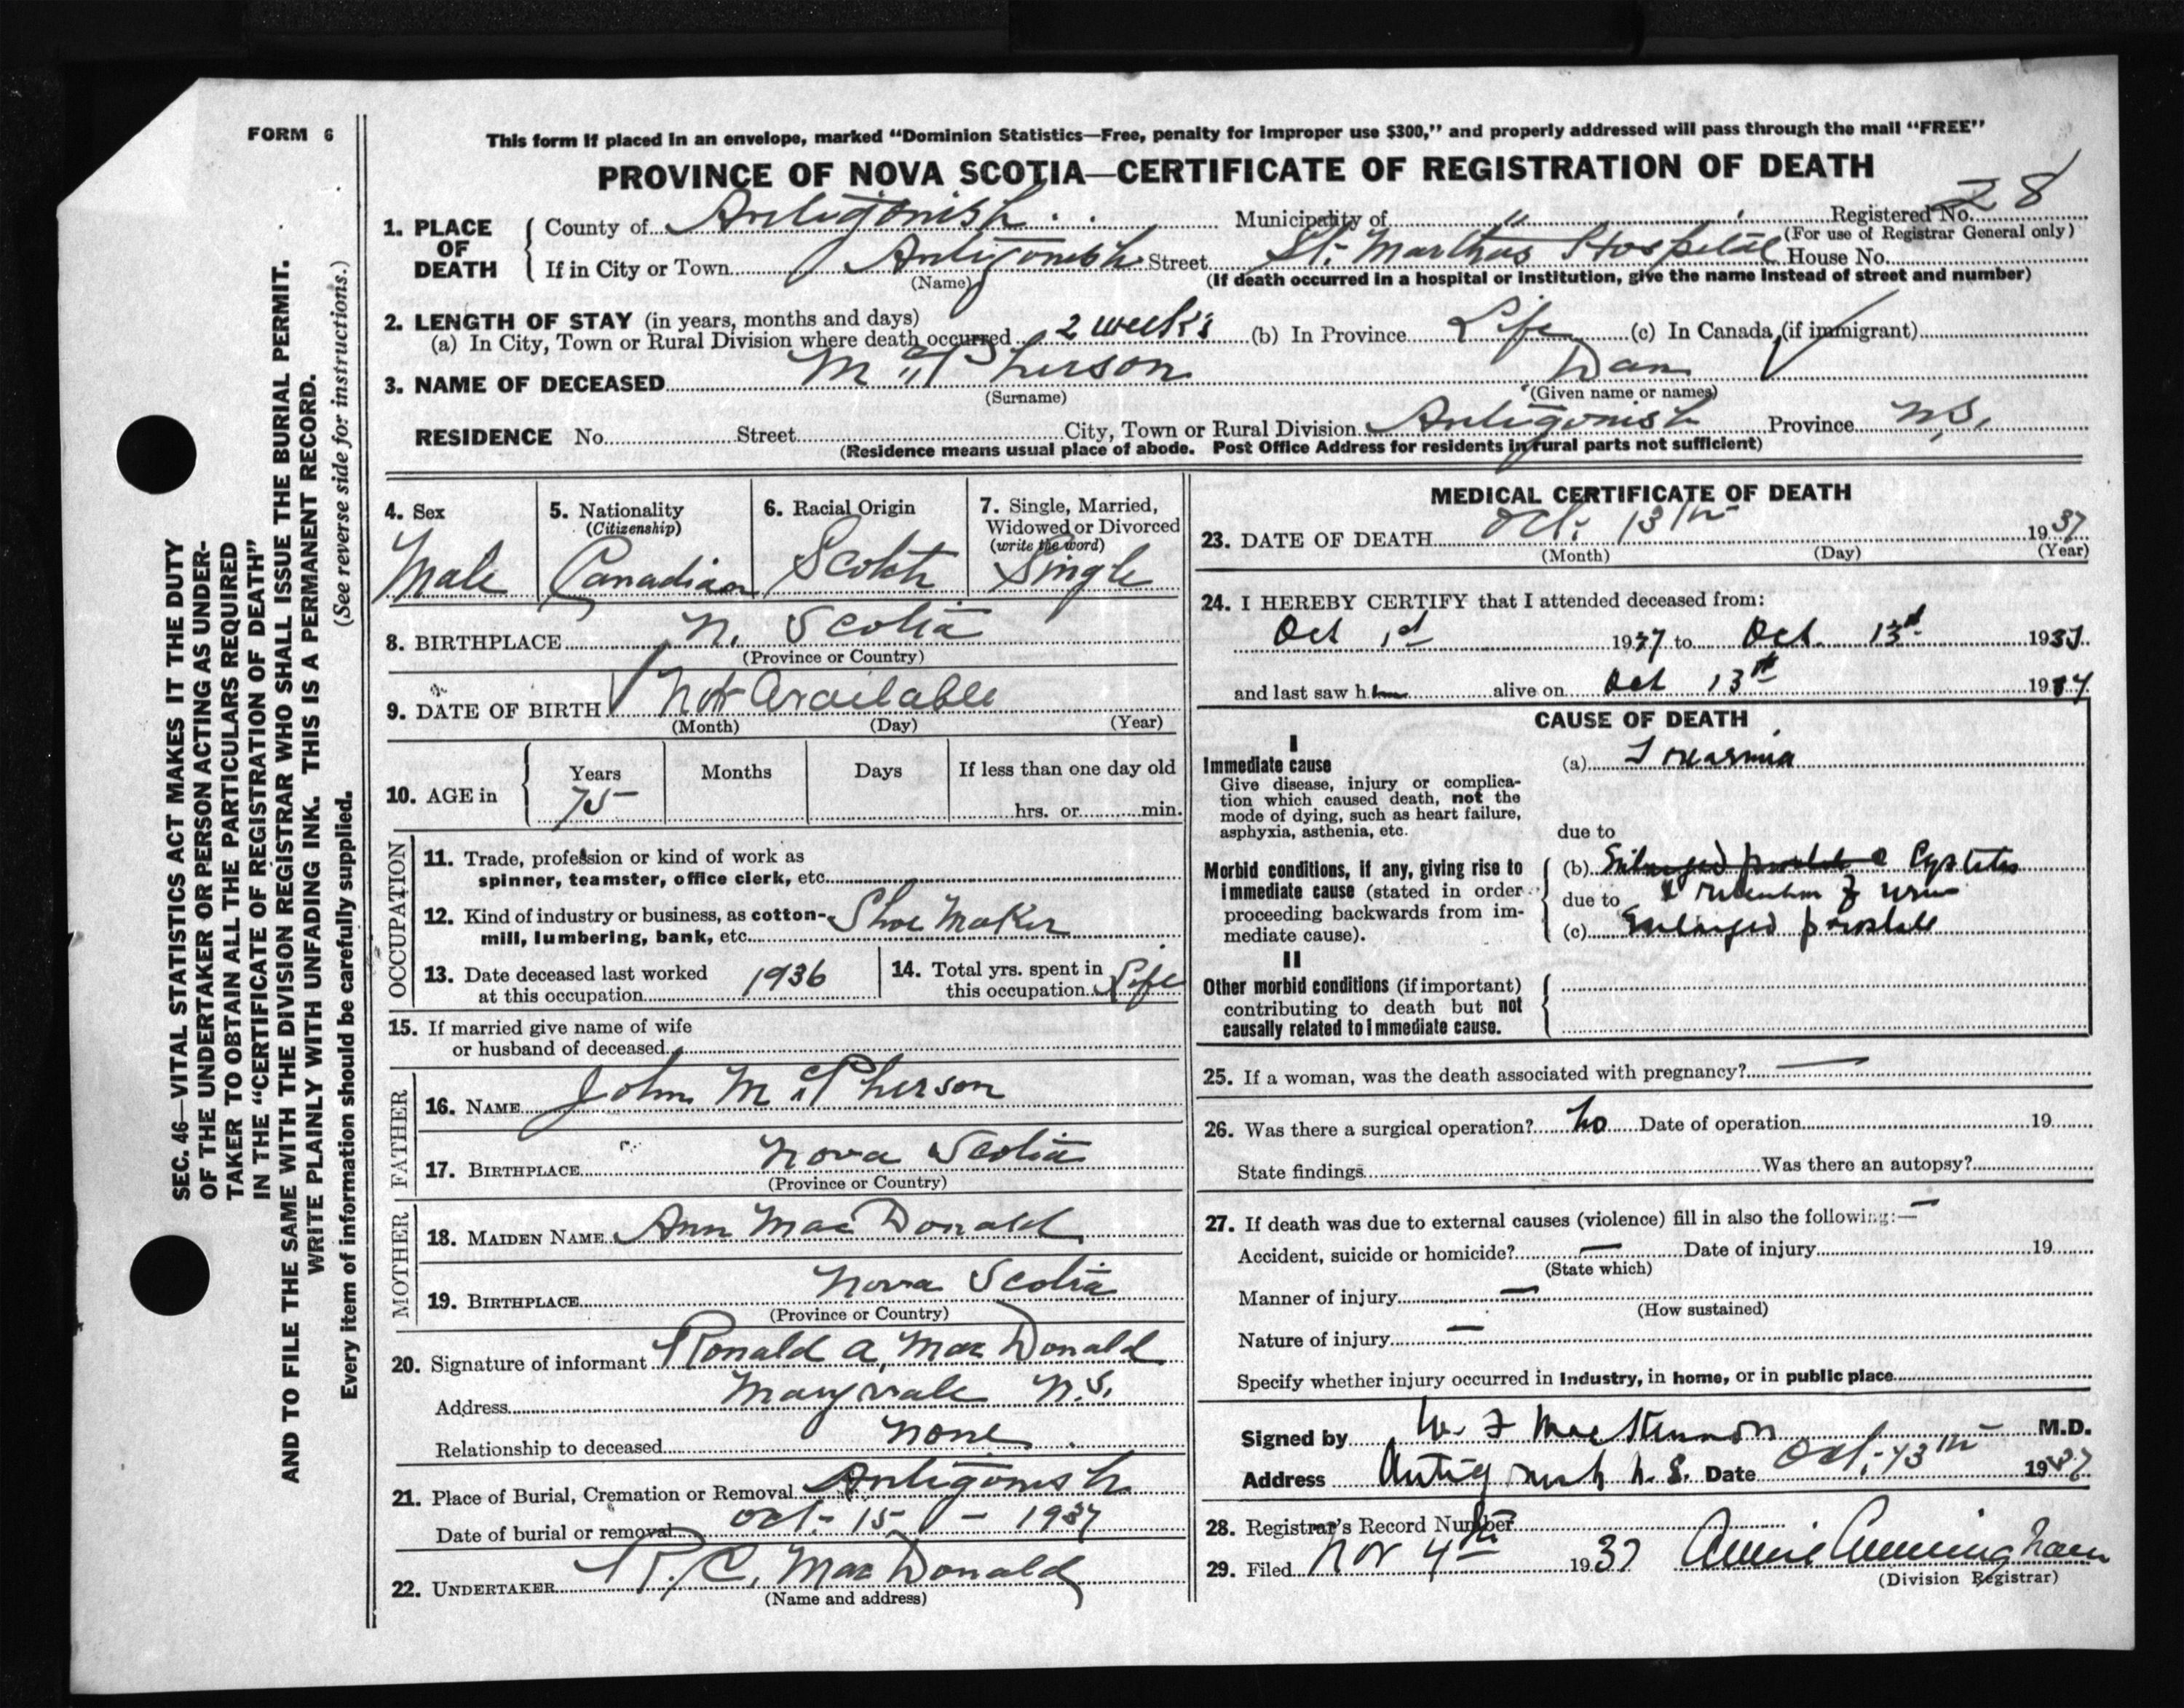 FORM 6
This form if placed in an envelope, marked "Dominion Statistics—Free, penalty for improper use $300," and properly addressed will pass through the mail "FREE"
PROVINCE OF NOVA SCOTIA—CERTIFICATE OF REGISTRATION OF DEATH
1. PLACE OF DEATH County of Antigonish Municipality of " Registered No. 28
(For use of Registrar General only)
If in City or Town Antigonish Street St. Marthas Hospital House No.
(Name) (If death occurred in a hospital or institution, give the name instead of street and number)
2. LENGTH OF STAY (in years, months and days)
(a) In City, Town or Rural Division where death occurred 2 weeks (b) In Province Life (c) In Canada (if immigrant)
3. NAME OF DECEASED McPherson Dan
(Surname) (Given name or names)
RESIDENCE No. Street City, Town or Rural Division Antigonish Province N.S.
(Residence means usual place of abode. Post Office Address for residents in rural parts not sufficient)
4. Sex Male
5. Nationality (Citizenship) Canadian
6. Racial Origin Scotch
7. Single, Married, Widowed or Divorced (write the word) Single
8. BIRTHPLACE N. Scotia
(Province or Country)
9. DATE OF BIRTH Not Available
(Month) (Day) (Year)
10. AGE in Years 75 Months Days If less than one day old
hrs. or min.
OCCUPATION
11. Trade, profession or kind of work as
spinner, teamster, office clerk, etc.
12. Kind of industry or business, as cotton-
mill, lumbering, bank, etc. Shoe Maker
13. Date deceased last worked
at this occupation 1936
14. Total yrs. spent in
this occupation Life
15. If married give name of wife
or husband of deceased
FATHER
16. NAME John McPherson
17. BIRTHPLACE Nova Scotia
(Province or Country)
MOTHER
18. MAIDEN NAME Ann MacDonald
19. BIRTHPLACE Nova Scotia
(Province or Country)
20. Signature of informant Ronald A. MacDonald
Address Maryvale N.S.
Relationship to deceased None
21. Place of Burial, Cremation or Removal Antigonish
Date of burial or removal Oct. 15 - 1937
22. UNDERTAKER R. C. MacDonald
(Name and address)
MEDICAL CERTIFICATE OF DEATH
23. DATE OF DEATH Oct. 13th 1937
(Month) (Day) (Year)
24. I HEREBY CERTIFY that I attended deceased from:
Oct 1st 1937 to Oct. 13th 1937
and last saw him alive on Oct 13th 1937
CAUSE OF DEATH
I
Immediate cause (a) Toxaemia
Give disease, injury or complica-
tion which caused death, not the
mode of dying, such as heart failure,
asphyxia, asthenia, etc.
due to
Morbid conditions, if any, giving rise to (b) Enlarged prostate Cystitis
immediate cause (stated in order due to & retention of urine
proceeding backwards from im- (c) Enlarged prostate
mediate cause).
II
Other morbid conditions (if important)
contributing to death but not
causally related to immediate cause.
25. If a woman, was the death associated with pregnancy? —
26. Was there a surgical operation? No Date of operation 19
State findings Was there an autopsy?
27. If death was due to external causes (violence) fill in also the following:— —
Accident, suicide or homicide? — Date of injury 19
(State which)
Manner of injury —
(How sustained)
Nature of injury —
Specify whether injury occurred in industry, in home, or in public place
Signed by W. F. MacKinnon M.D.
Address Antigonish N.S. Date Oct. 13th 1937
28. Registrar's Record Number
29. Filed Nov 4th 1937 Annie Cunningham
(Division Registrar)
SEC. 46—VITAL STATISTICS ACT MAKES IT THE DUTY
OF THE UNDERTAKER OR PERSON ACTING AS UNDER-
TAKER TO OBTAIN ALL THE PARTICULARS REQUIRED
IN THE "CERTIFICATE OF REGISTRATION OF DEATH"
AND TO FILE THE SAME WITH THE DIVISION REGISTRAR WHO SHALL ISSUE THE BURIAL PERMIT.
WRITE PLAINLY WITH UNFADING INK. THIS IS A PERMANENT RECORD.
Every item of information should be carefully supplied. (See reverse side for instructions.)